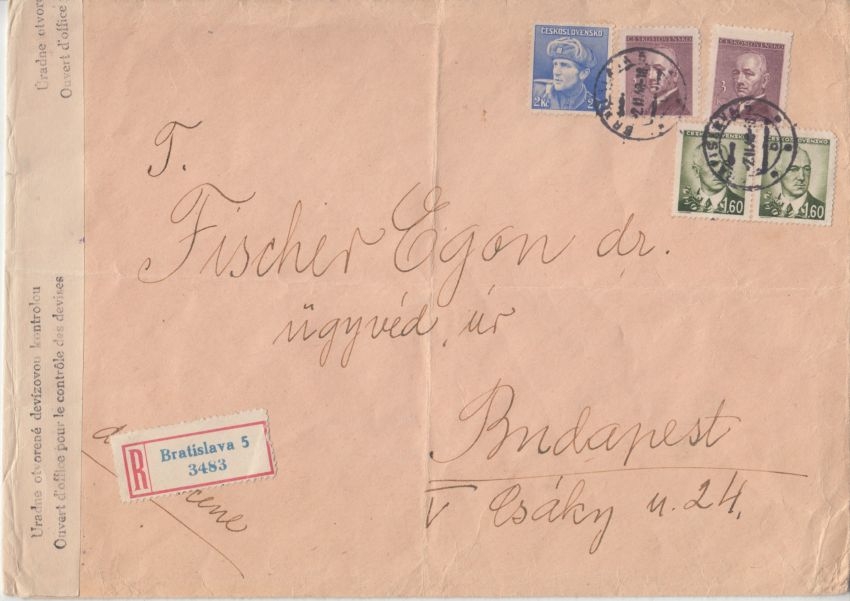 Úradne otvorené devízovou kontrolou
Ouvert d'office pour le contrôle des devises
Úradne otvor
Ouvert d'office
ČESKOSLOVENSKO
2Kč
ČESKOSLOVENSKO
ČESKOSLOVENSKO
3
1.60
1.60
T.
Fischer Egon dr.
ügyvéd úr
Budapest
V Csáky u. 24.
R
Bratislava 5
3483